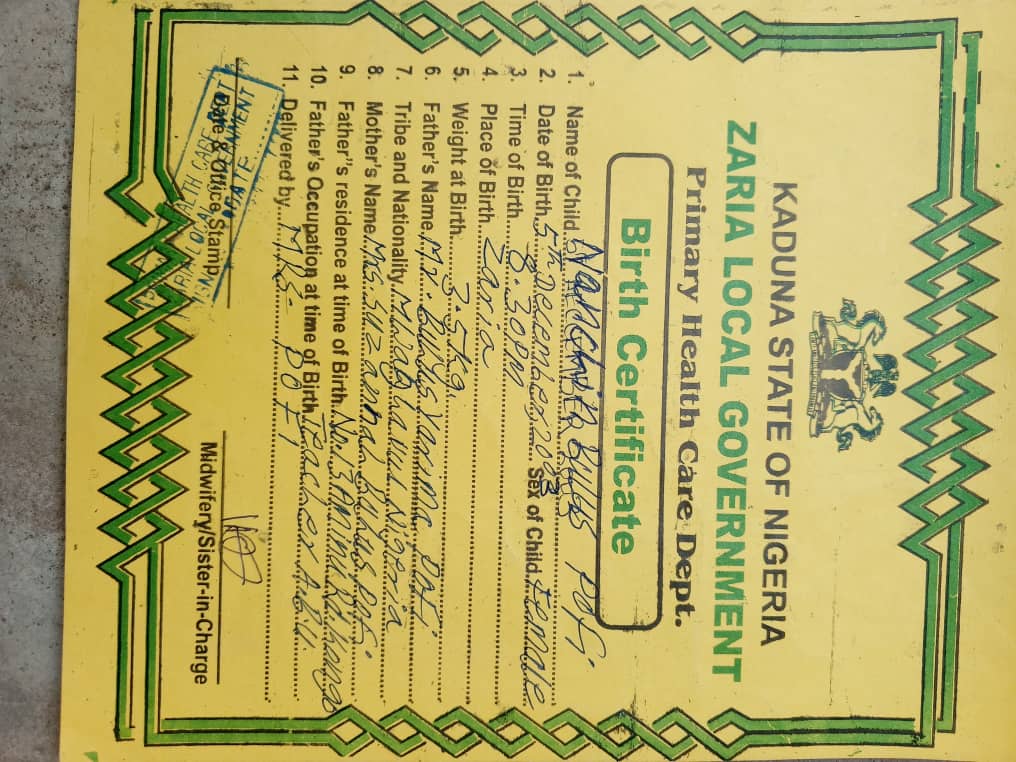 KADUNA STATE OF NIGERIA
ZARIA LOCAL GOVERNMENT
Primary Health Care Dept.
Birth Certificate
1. Name of Child Bulus Pofi
2. Date of Birth 5th December 2003 Sex of Child Female
3. Time of Birth 8.30pm
4. Place of Birth Zaria
5. Weight at Birth 3.5kg.
6. Father's Name Mr. Bulus Pofi
7. Tribe and Nationality Nigeria
8. Mother's Name Mrs. Suzannah Bulus Pofi
9. Father"s residence at time of Birth No.
10. Father's Occupation at time of Birth Teacher A.B.U.
11. Delivered by MRS POFI
Date & Office Stamp
Midwifery/Sister-in-Charge